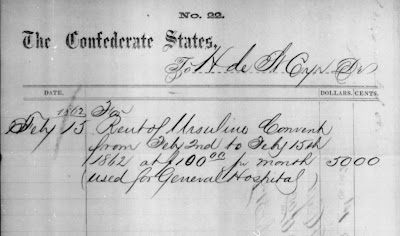 No. 22.
The Confederate States,
To H de St Cyr Dr
DATE. DOLLARS. CENTS.
1862 For
Feby 15 Rent of Ursuline Convent
from Feby 2nd to Feby 15th
1862 at $100.00 pr month 5000
(used for General Hospital)